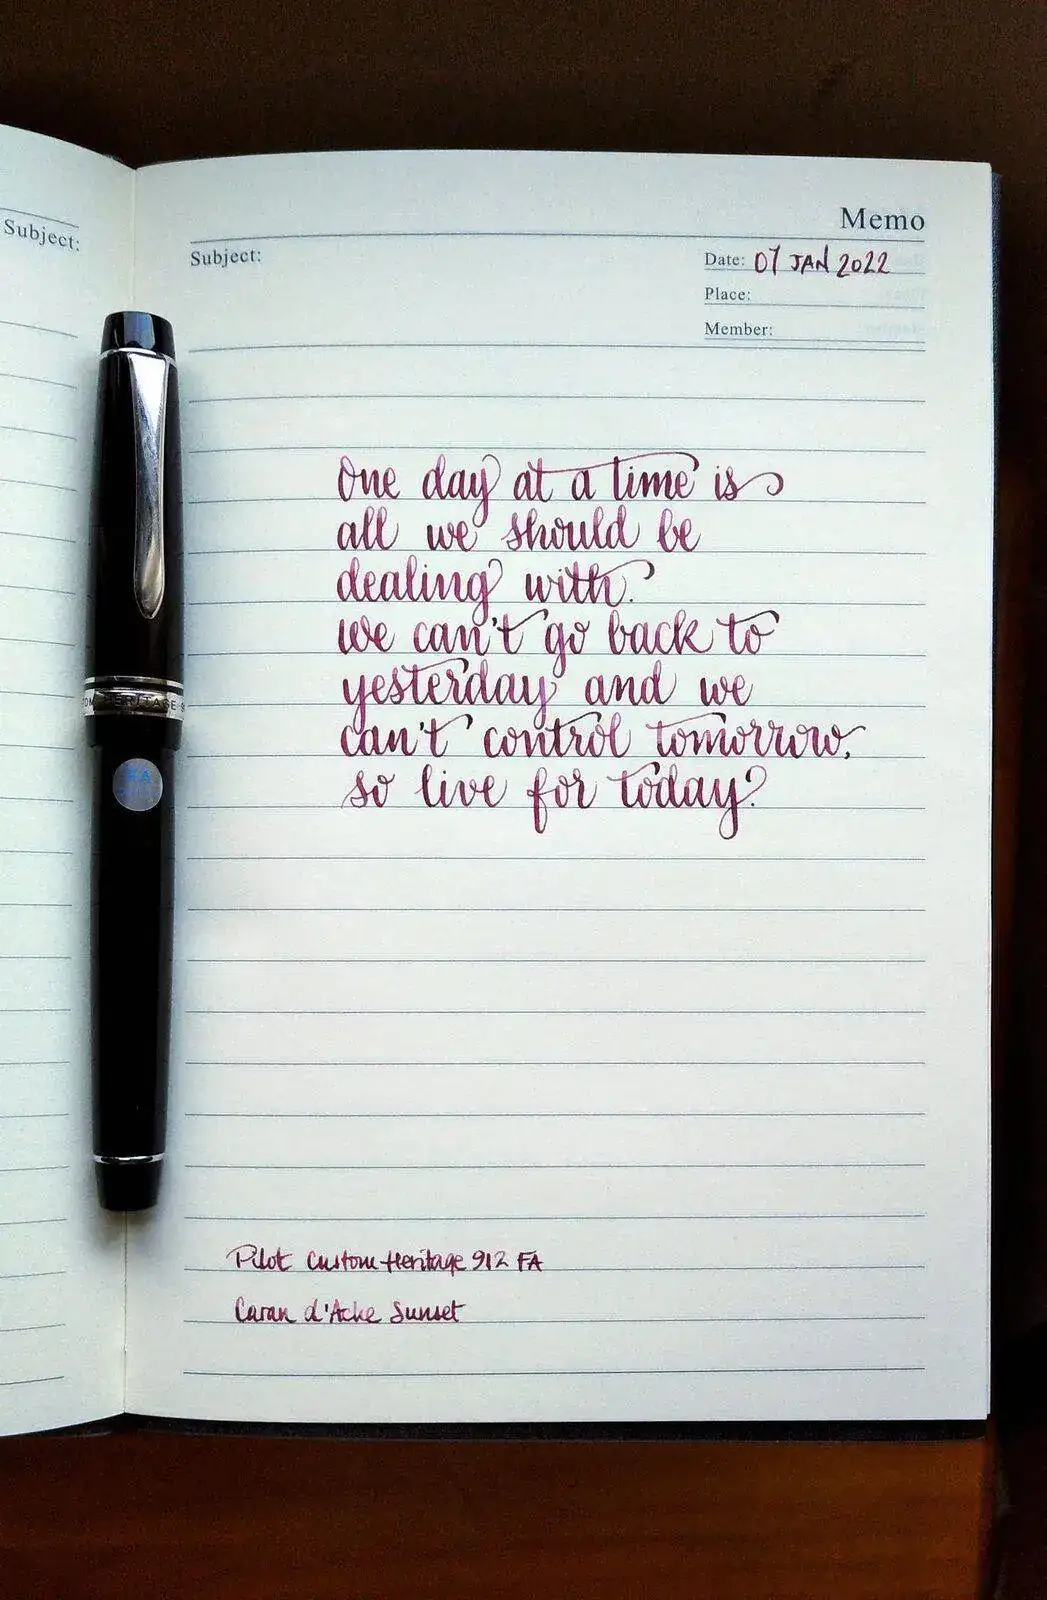 Subject:
Memo
Subject:
Date: 07 JAN 2022
Place:
Member:
One day at a time is
all we should be
dealing with.
we can't go back to
yesterday and we
can't control tomorrow,
so live for today?
HERITAGE
FA
Pilot Custom Heritage 912 FA
Caran d'Ache Sunset